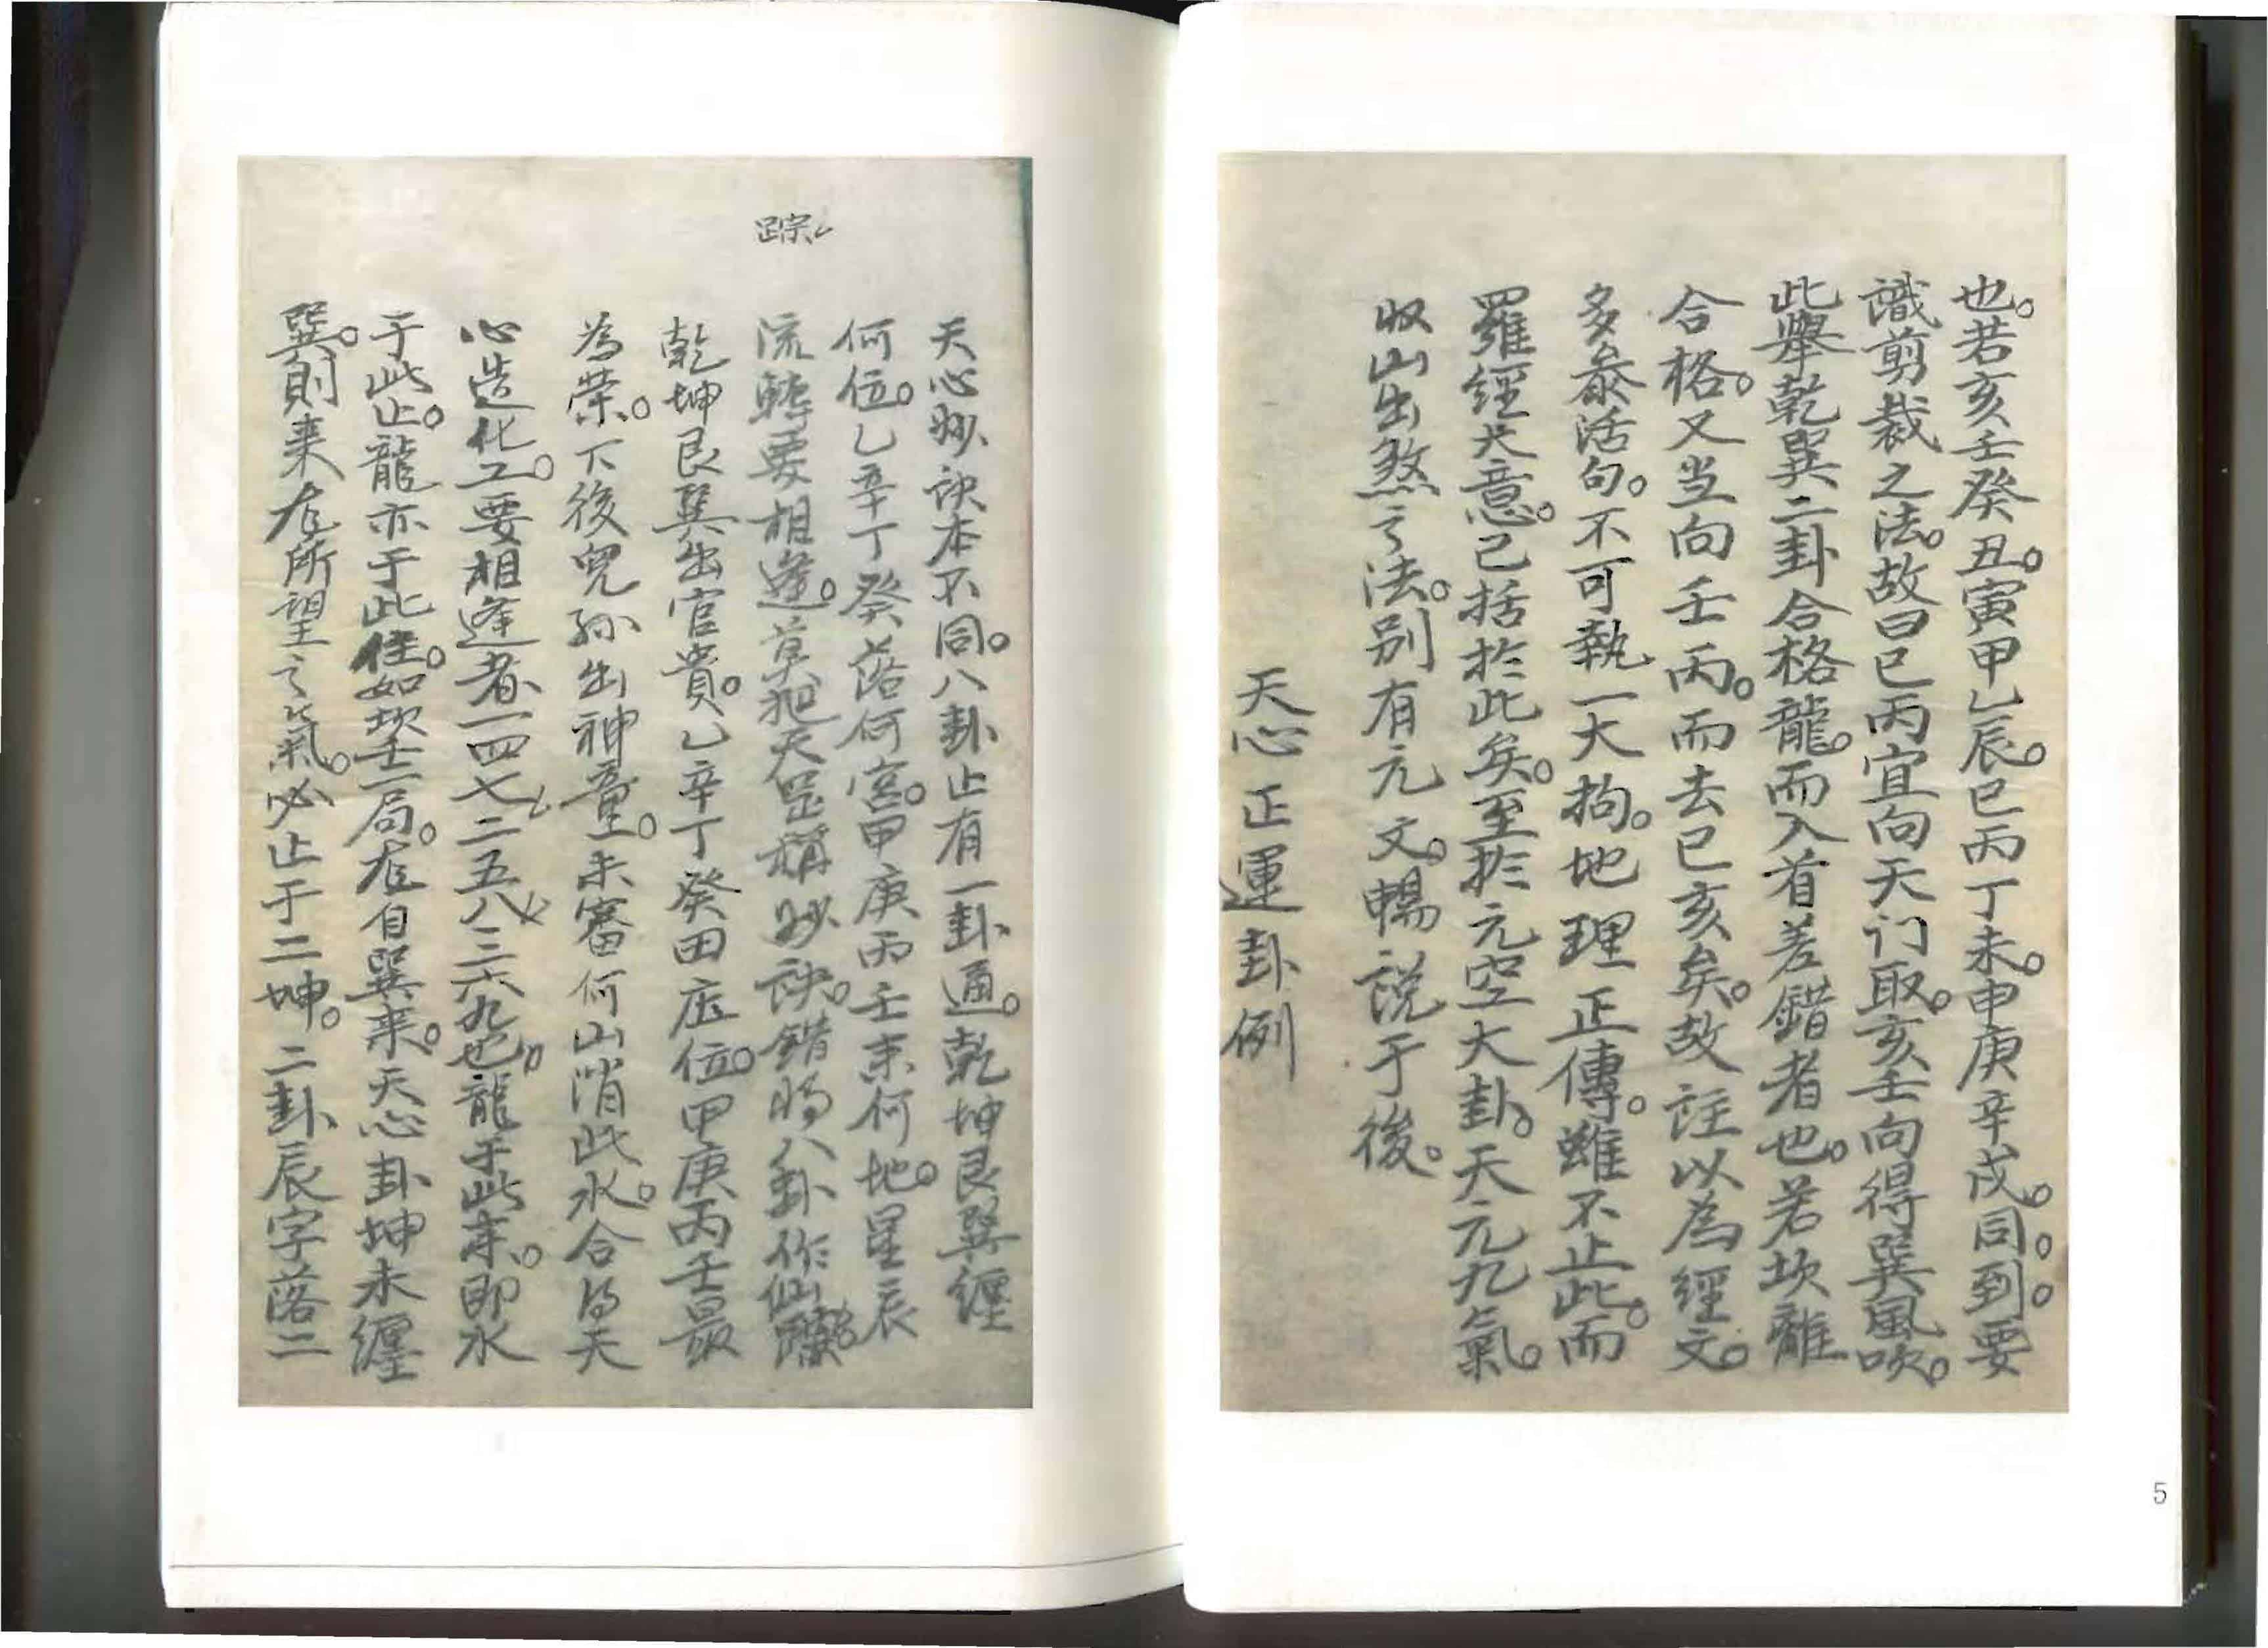 也。若亥壬癸丑。寅甲乙辰。巳丙丁未。申庚辛戌。同。到。要
識剪裁之法。故曰巳丙宜向天门取。亥壬向得巽風吹。
此舉乾巽二卦合格龍。而入首差錯者也。若坎離
合格。又当向壬丙。而去巳亥矣。故註以為經文。
多叅活句。不可執一大拘。地理正傳。雖不止此。而
羅經大意。已括扵此矣。至扵元空大卦。天元九氣。
収山出煞之法。别有元文。暢說于後。
天心正運卦例
5
踪
天心妙訣本不同。八卦止有一卦通。乾坤艮巽纏
何位。乙辛丁癸落何宮。甲庚丙壬来何地。星辰
流轉要相逢。莫把天罡稱妙訣。錯將八卦作仙
乾坤艮巽出官貴。乙辛丁癸田庄位。甲庚丙壬最
為荣。下後兒孙出神童。未審何山消此水。合得天
心造化工。要相逢者一四七二五八三六九也。龍于此来。即水
于此止。龍亦于此住。如坎壬一局。左自巽来。天心卦坤未纏
巽。則来左所望之氣。必止于二坤。二卦辰字落二